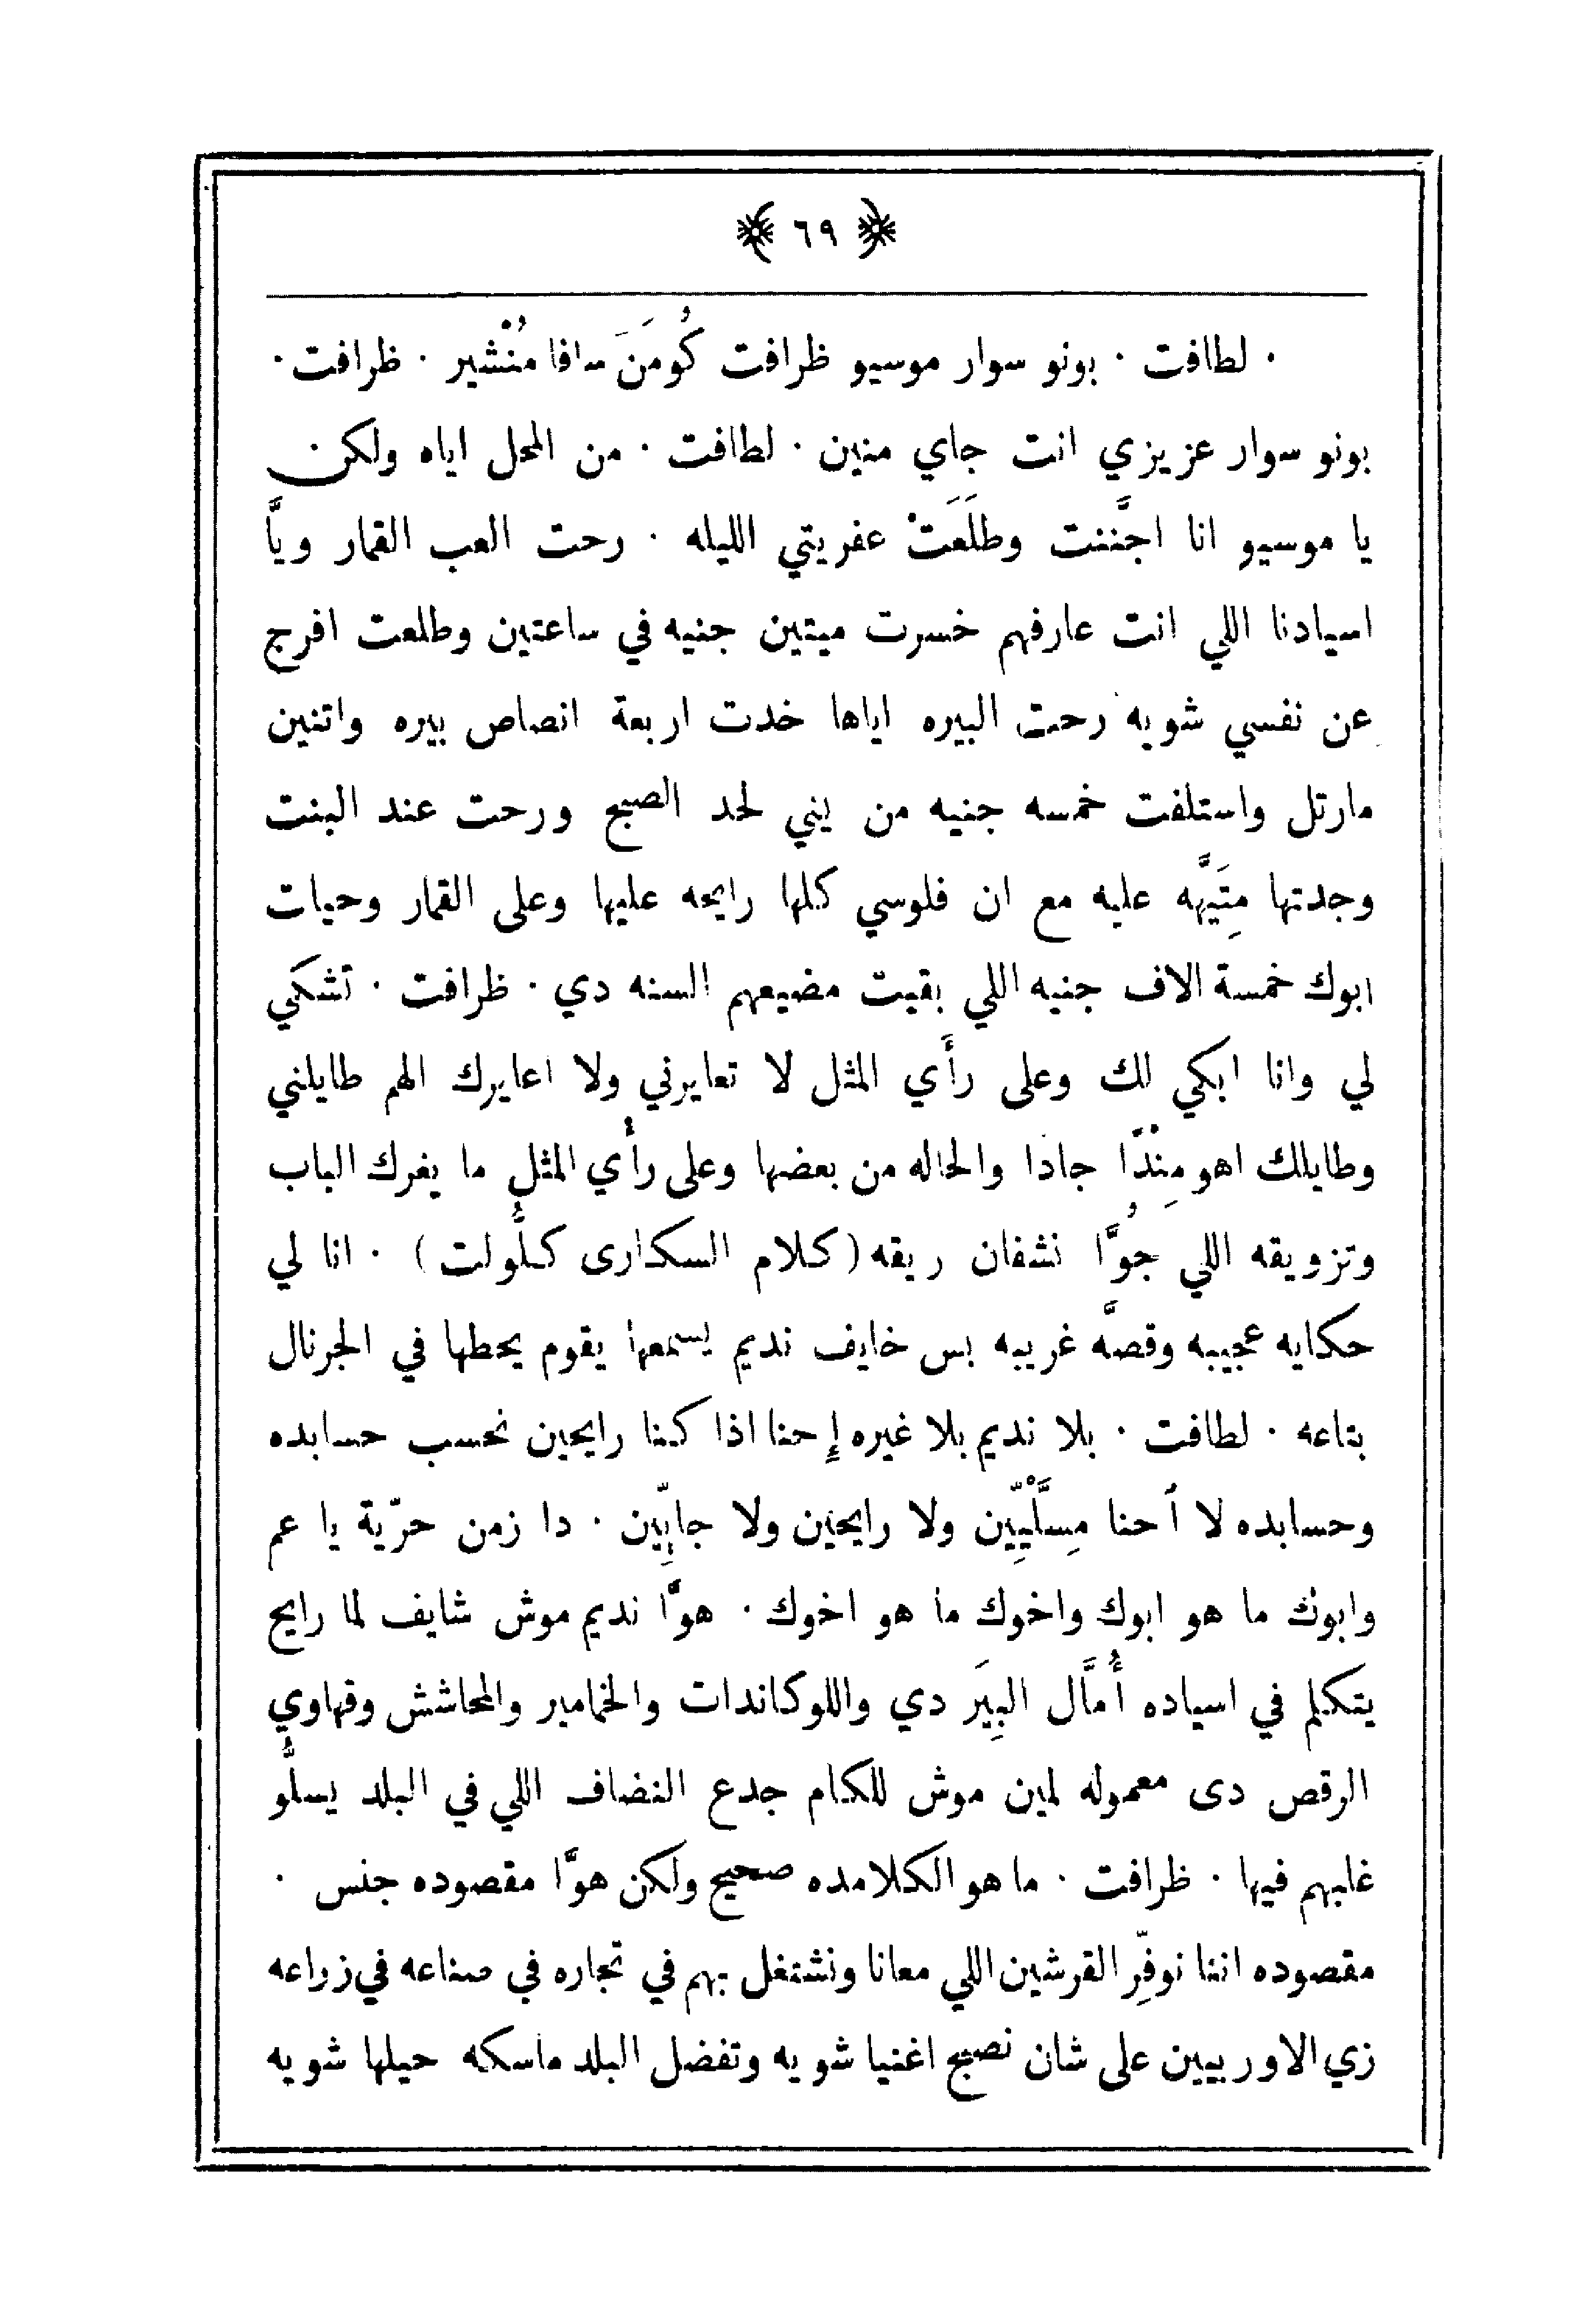 ٦٩
· لطافت · بونو سوار موسيو ظرافت كُومَنَ سافا مُنْشير · ظرافت ·
بونو سوار عزيزي انت جاي منين · لطافت · من المحل اياه ولكن
يا موسيو انا اجَّننت وطلَعَتْ عفريتي الليله · رحت العب القمار ويَّا
اسيادنا اللي انت عارفهم خسرت ميتين جنيه في ساعتين وطلعت افرج
عن نفسي شويه رحت البيره اياها خدت اربعة انصاص بيره واتنين
مارتل واستلفت خمسه جنيه من يني لحد الصبح ورحت عند البنت
وجدتها مِتَيَّهه عليه مع ان فلوسي كلها رايحه عليها وعلى القمار وحيات
ابوك خمسة الاف جنيه اللي بقيت مضيعهم السنه دي · ظرافت · تشكي
لي وانا ابكي لك وعلى رأَي المثل لا تعايرني ولا اعايرك الهم طايلني
وطايلك اهو مِنْدَّا جادا والحاله من بعضها وعلى رأْي المثل ما يغرك الباب
وتزويقه اللي جُوَّا نشفان ريقه (كلام السكارى كلُّولت) · انا لي
حكايه عجيبه وقصَّه غريبه بس خايف نديم يسمعها يقوم يحطها في الجرنال
بتاعه · لطافت · بلا نديم بلا غيره إحنا اذا كنا رايحين نحسب حسابده
وحسابده لا أحنا مِسلَّيِّين ولا رايحين ولا جايِّين · دا زمن حرّية يا عم
وابوك ما هو ابوك واخوك ما هو اخوك · هوَّا نديم موش شايف لما رايح
يتكلم في اسياده أُمَّال البِيَر دي واللوكاندات والخمامير والمحاشش وقهاوي
الرقص دى معموله لمين موش للكام جدع النضاف اللي في البلد يسلُّو
غلبهم فيها · ظرافت · ما هو الكلامده صحيح ولكن هوَّا مقصوده جنس ·
مقصوده اننا نوفِّر القرشين اللي معانا ونشتغل بهم في تجاره في صناعه في زراعه
زي الاوربيين على شان نصبح اغنيا شويه وتفضل البلد ماسكه حيلها شويه